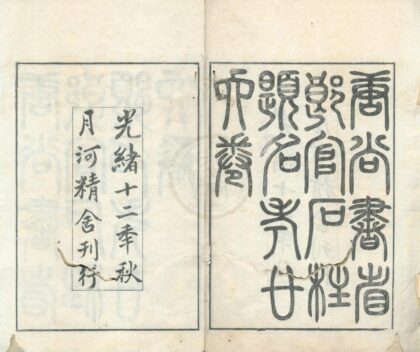 唐尚書省
郎官石柱
題名考廿
六卷
光緒十二秊秋
月河精舍刊行